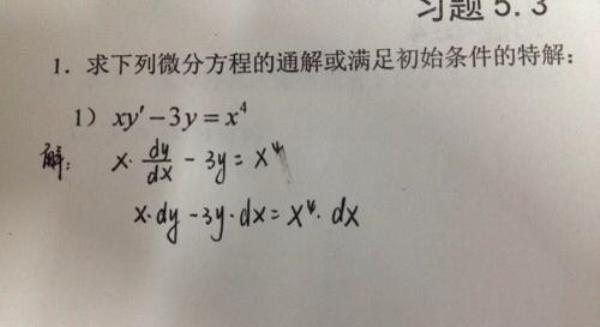 习题 5.3
1. 求下列微分方程的通解或满足初始条件的特解：
1) xy′ − 3y = x⁴
解： x· dy/dx − 3y = x⁴
x·dy − 3y·dx = x⁴· dx